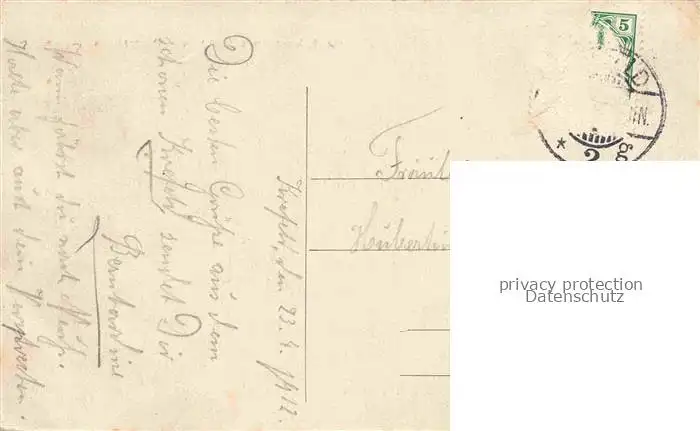 Krefeld, den 23.4.1912.
Die besten Grüße aus dem
schönen Krefeld sendet Dir
Bernhardine
Wann fährst du nach
Halte aber auch dein Versprechen.
Fräul
Hubertin
5
LD
N.
* 2 g
privacy protection
Datenschutz